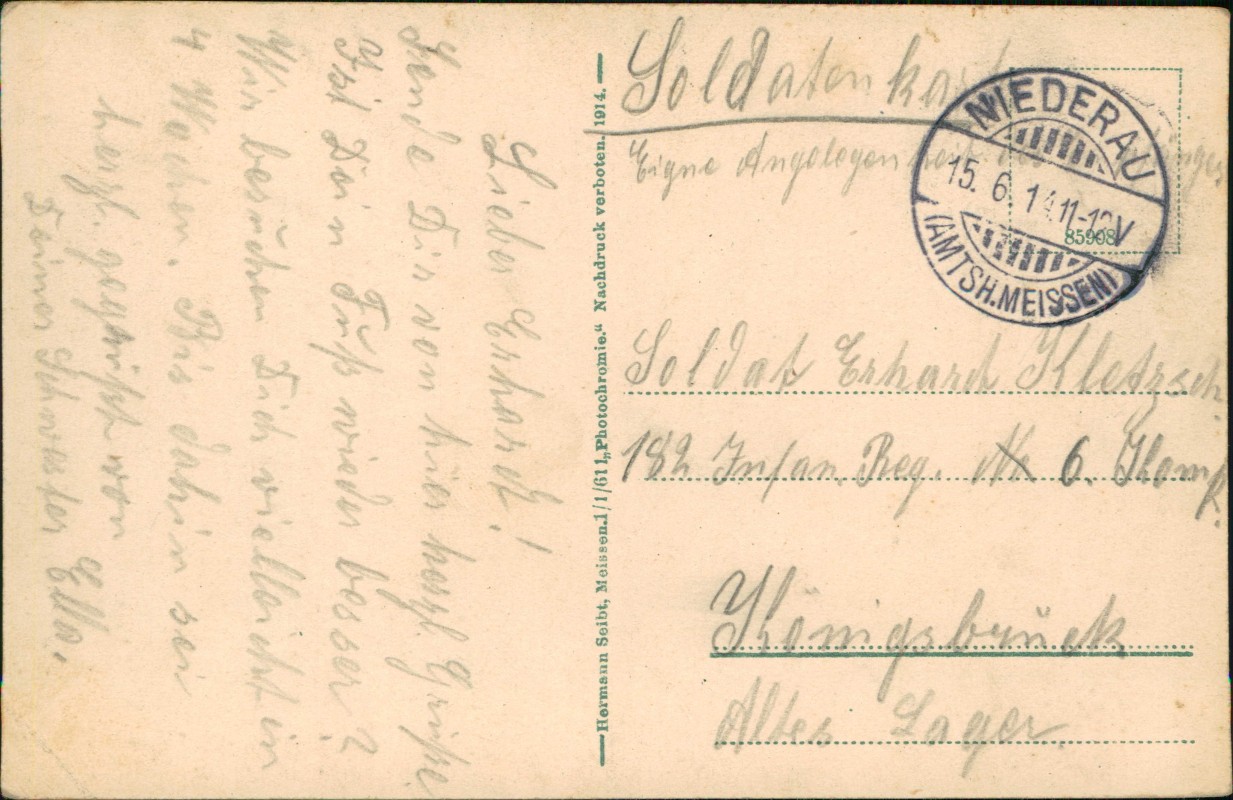 Lieber Erhard!
Sende Dir von hier herzl. Grüße
Ist Dein Fuß wieder besser?
Wir besuchen Dich vielleicht in
4 Wochen. Bis dahin sei
herzl. gegrüßt von
Deiner Schwester Ella.
Hermann Seibt, Meissen.1/1/611 „Photochromie.“ Nachdruck verboten. 1914.
Soldatenkarte
Eigne Angelegenheit des
NIEDERAU
15. 6. 14. 11-12V
(AMTSH. MEISSEN)
85908
Soldat Erhard Kletzsch
182 Infan. Reg. 6. Komp.
Königsbrück
Altes Lager.